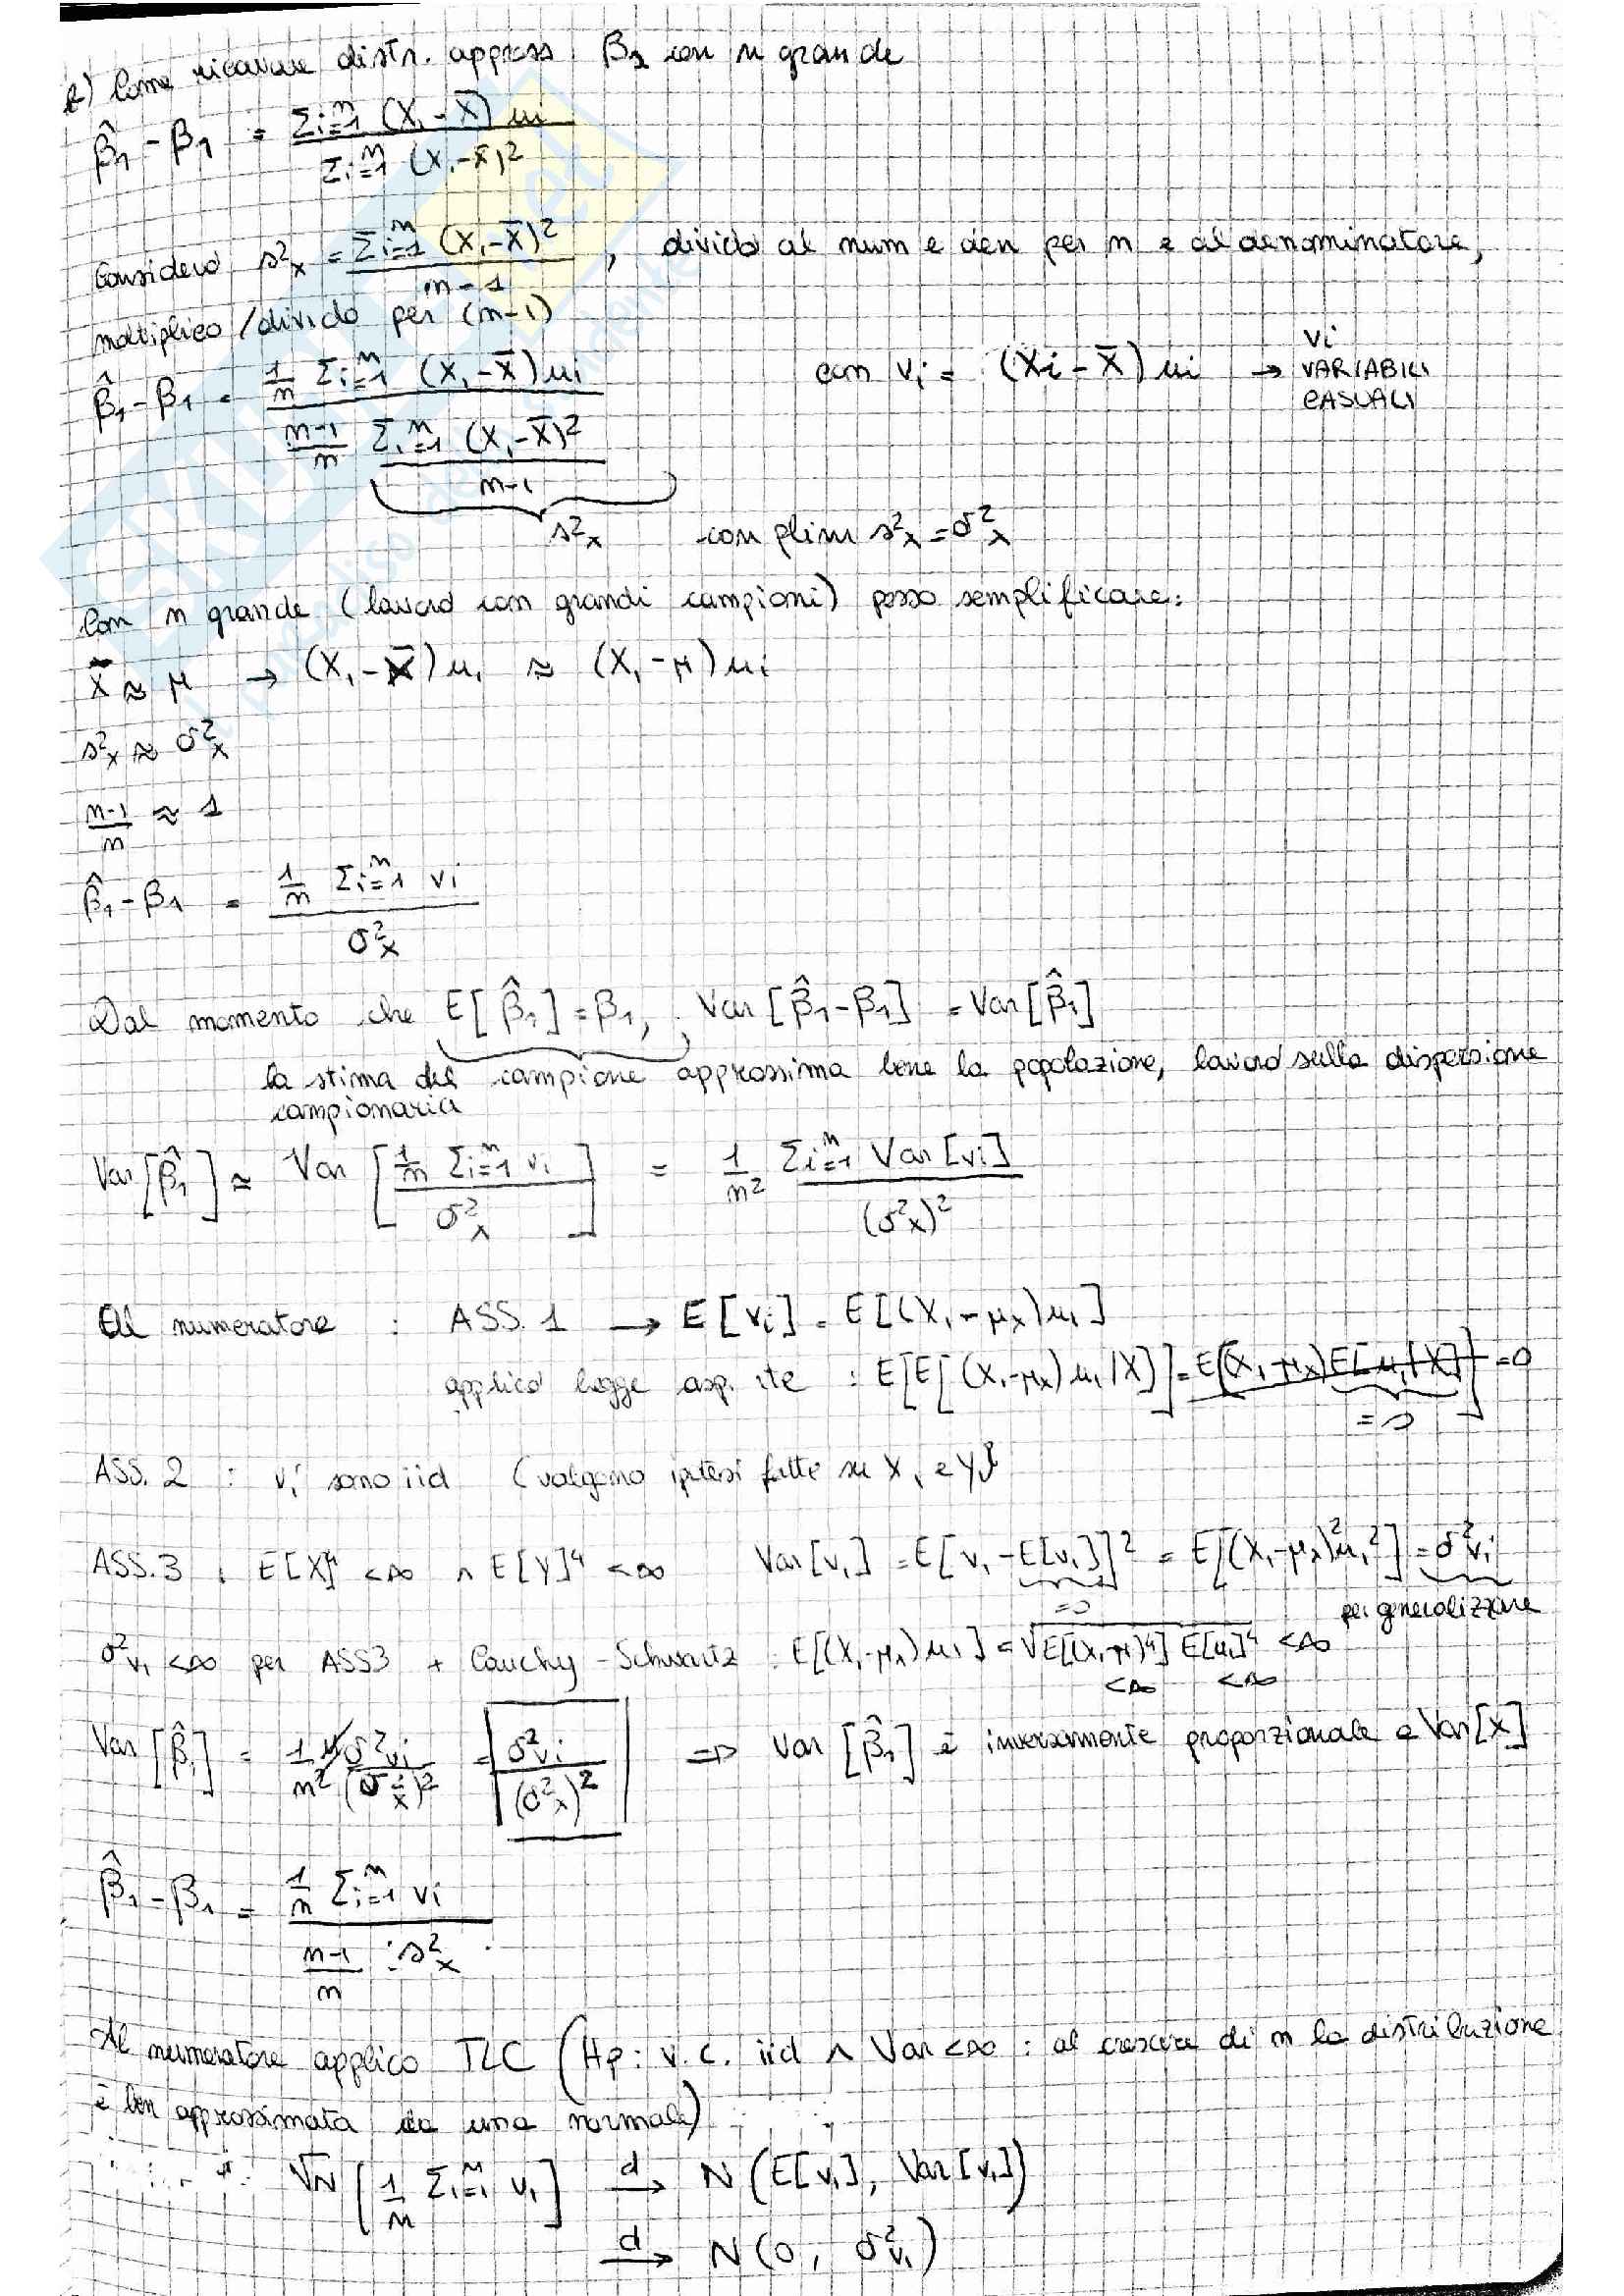 2) Come ricavare distr. appross. β1 con n grande
β̂1 - β1 = Σi=1^n (Xi - X̄) ui / Σi=1^n (Xi - X̄)²
Considero s²x = Σi=1^n (Xi - X̄)² / n-1 , divido al num e den per n e al denominatore,
moltiplico/divido per (n-1)
β̂1 - β1 = 1/n Σi=1^n (Xi - X̄) ui / n-1/n Σi=1^n (Xi - X̄)² / n-1    con vi = (Xi - X̄) ui → vi VARIABILI CASUALI
s²x    con plim s²x = σ²x
Con n grande (lavoro con grandi campioni) posso semplificare:
X̄ ≈ μ → (Xi - X̄) ui ≈ (Xi - μ) ui
s²x ≈ σ²x
n-1/n ≈ 1
β̂1 - β1 = 1/n Σi=1^n vi / σ²x
Dal momento che E[β̂1] = β1, Var[β̂1 - β1] = Var[β̂1]
la stima del campione approssima bene la popolazione, lavoro sulla dispersione
campionaria
Var[β̂1] ≈ Var[1/n Σi=1^n vi / σ²x] = 1/n² Σi=1^n Var[vi] / (σ²x)²
Al numeratore : ASS. 1 → E[vi] = E[(Xi - μx) ui]
applico legge asp. ite : E[E[(Xi - μx) ui | X]] = E[(Xi - μx) E[ui | X]] = 0
= 0
ASS. 2 : vi sono iid (valgono ipotesi fatte su Xi e Yi)
ASS. 3 : E[X]⁴ < ∞ ∧ E[Y]⁴ < ∞    Var[vi] = E[vi - E[vi]]² = E[(Xi - μx)² ui²] = σ²vi
= 0    per generalizzare
σ²vi < ∞ per ASS3 + Cauchy-Schwartz : E[(Xi - μx) ui] = √E[(Xi - μ)⁴] E[ui]⁴ < ∞
< ∞    < ∞
Var[β̂1] = 1/n² n σ²vi / (σ²x)² = σ²vi / (σ²x)² ⇒ Var[β̂1] è inversamente proporzionale a Var[X]
β̂1 - β1 = 1/n Σi=1^n vi / n-1/n · s²x
Al numeratore applico TLC (Hp: v.c. iid ∧ Var < ∞ : al crescere di n la distribuzione
è ben approssimata da una normale)
√N [1/n Σi=1^n vi] →d N(E[vi], Var[vi])
→d N(0, σ²vi)